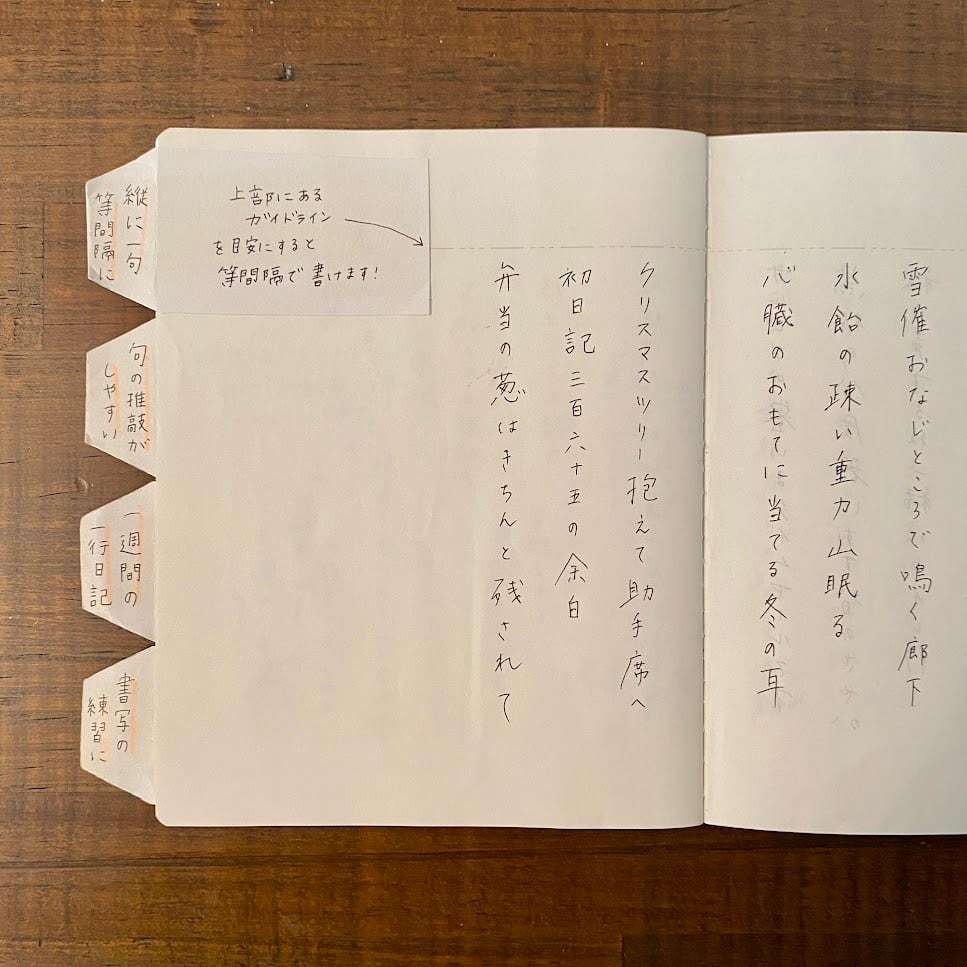 雪催おなじところで鳴く廊下
水飴の疎い重力山眠る
心臓のおもてに当てる冬の耳
クリスマスツリー抱えて助手席へ
初日記三百六十五の余白
弁当の葱はきちんと残されて
上部にある
ガイドライン
を目安にすると
等間隔で書けます!
縦に一句
等間隔に
句の推敲が
しやすい
一週間の
一行日記
書写の
練習に